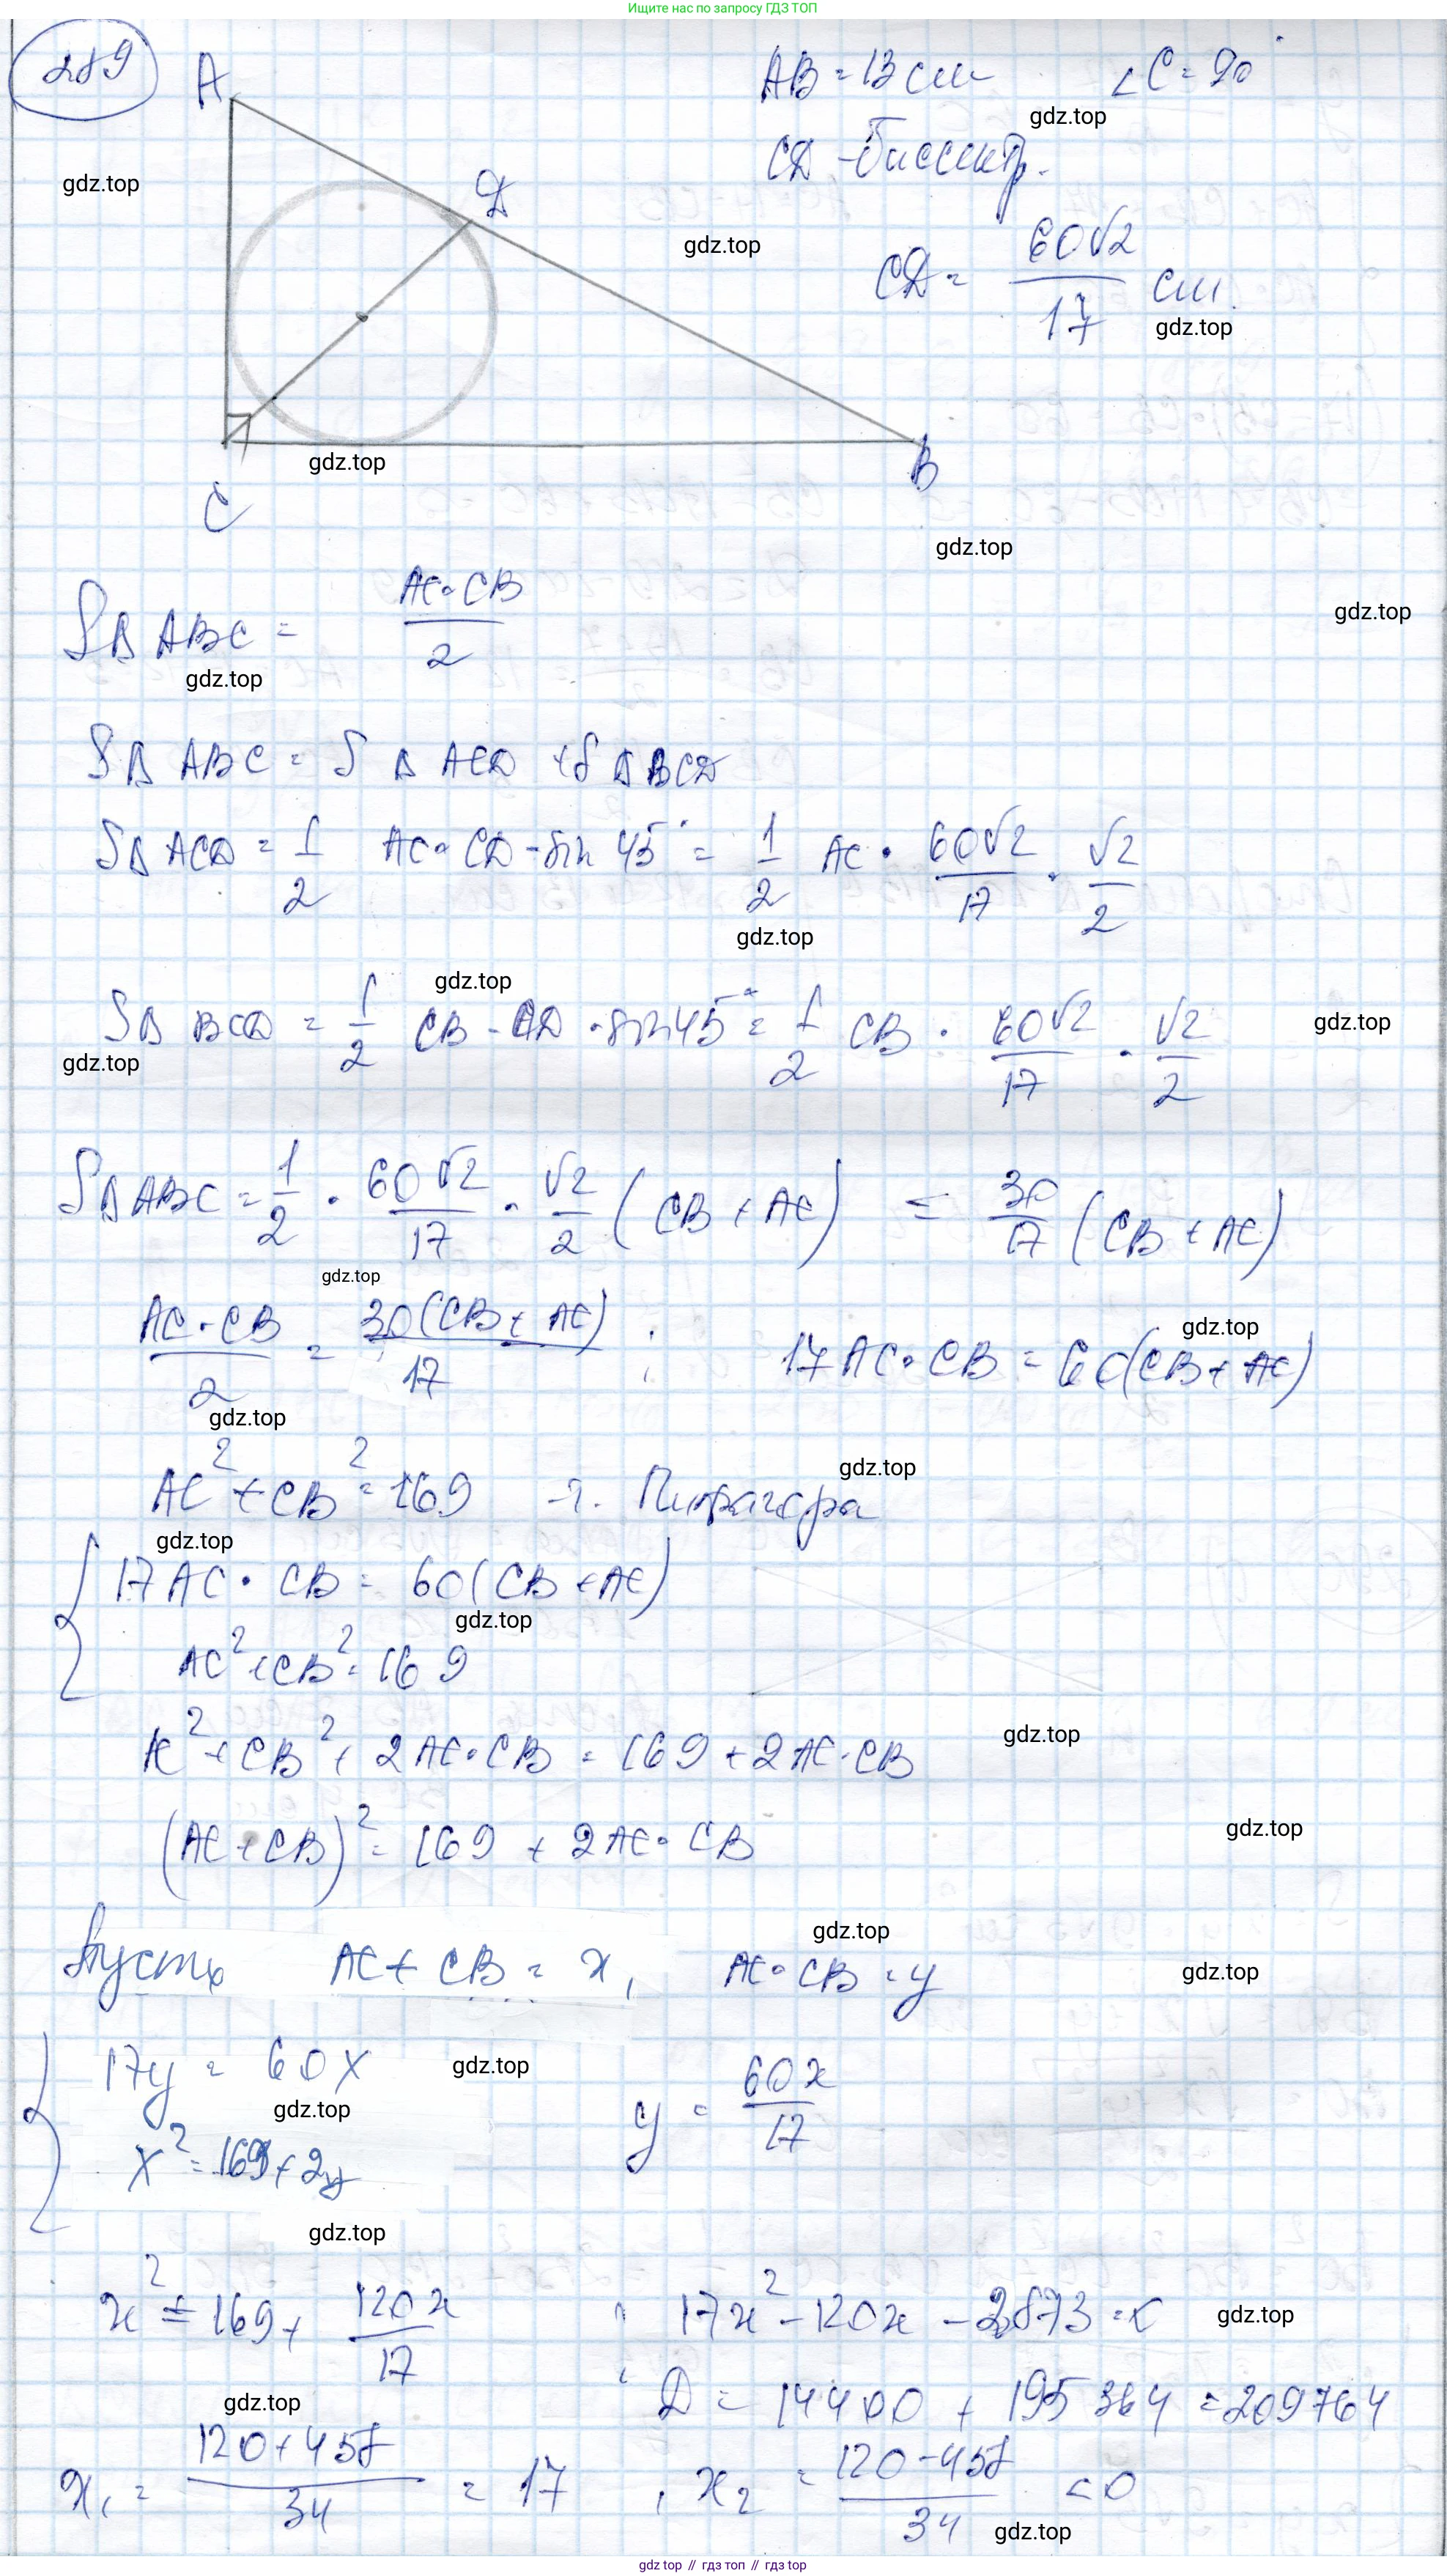 Ищите нас по запросу ГДЗ ТОП
289
A
AB = 13 см ∠C = 90°
gdz.top
CD - биссектр.
gdz.top
D
gdz.top
CD = 60√2/17 см.
gdz.top
B
gdz.top
C
gdz.top
S△ ABC = AC·CB/2
gdz.top
gdz.top
S△ ABC = S △ ACD + S △ BCD
S△ ACD = 1/2 AC · CD · sin 45° = 1/2 AC · 60√2/17 · √2/2
gdz.top
gdz.top
S△ BCD = 1/2 CB · CD · sin 45° = 1/2 CB · 60√2/17 · √2/2
gdz.top
gdz.top
S△ ABC = 1/2 · 60√2/17 · √2/2 (CB + AC) = 30/17 (CB + AC)
gdz.top
AC·CB/2 = 30(CB + AC)/17 ; 17 AC · CB = 60(CB + AC)
gdz.top
gdz.top
AC² + CB² = 169 - т. Пифагора
gdz.top
gdz.top
{ 17 AC · CB = 60(CB + AC)
gdz.top
AC² + CB² = 169
AC² + CB² + 2 AC · CB = 169 + 2 AC · CB
gdz.top
(AC + CB)² = 169 + 2 AC · CB
gdz.top
Пусть AC + CB = x, AC · CB = y
gdz.top
gdz.top
{ 17y = 60x
gdz.top
y = 60x/17
gdz.top
x² = 169 + 2y
gdz.top
x² = 169 + 120x/17 ; 17x² - 120x - 2873 = 0
gdz.top
; D = 14400 + 195364 = 209764
gdz.top
x₁ = 120 + 458/34 = 17 , x₂ = 120 - 458/34 < 0
gdz.top
gdz top // гдз топ // gdz top